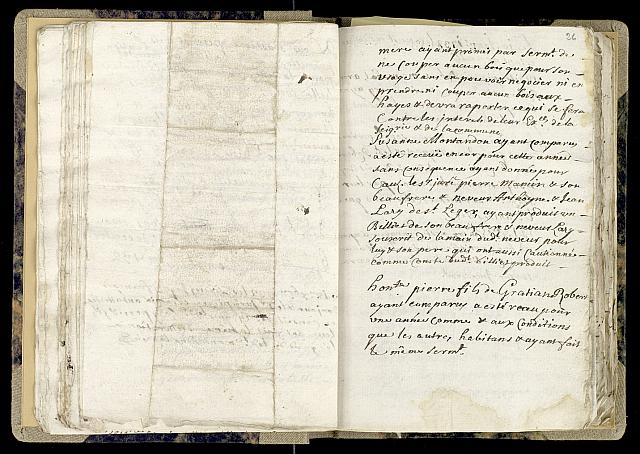 26
mere ayant promis par serm.t de
ne Couper aucun bois que pour son
usage sans en pouvoir negocier ni en
prendre ni couper aucun bois aux
hayes & devra raporter ce qui se fera
Contre les interets de leur Ex.ces de la
Seig.rie & de la commune
Susanne Montandon ayant comparu
a esté receuë encor pour cette année
sans consequence ayant donné pour
Cau. le s.r juré pierre & son
beaufrere & neveur & Jean
Lary de s.t Leger, ayant produit un
Billiet de son beaufrere & neveur Lary
souscrit de la main dud.t neveur pour
luy & son pere qui ont aussi Cautionné
comme Conste dud.t billiet produit
hon.ble pierre fils de Gratian Robert
ayant comparus a esté receu pour
une année comme & aux Conditions
que les autres habitans & ayant fait
le même serm.t